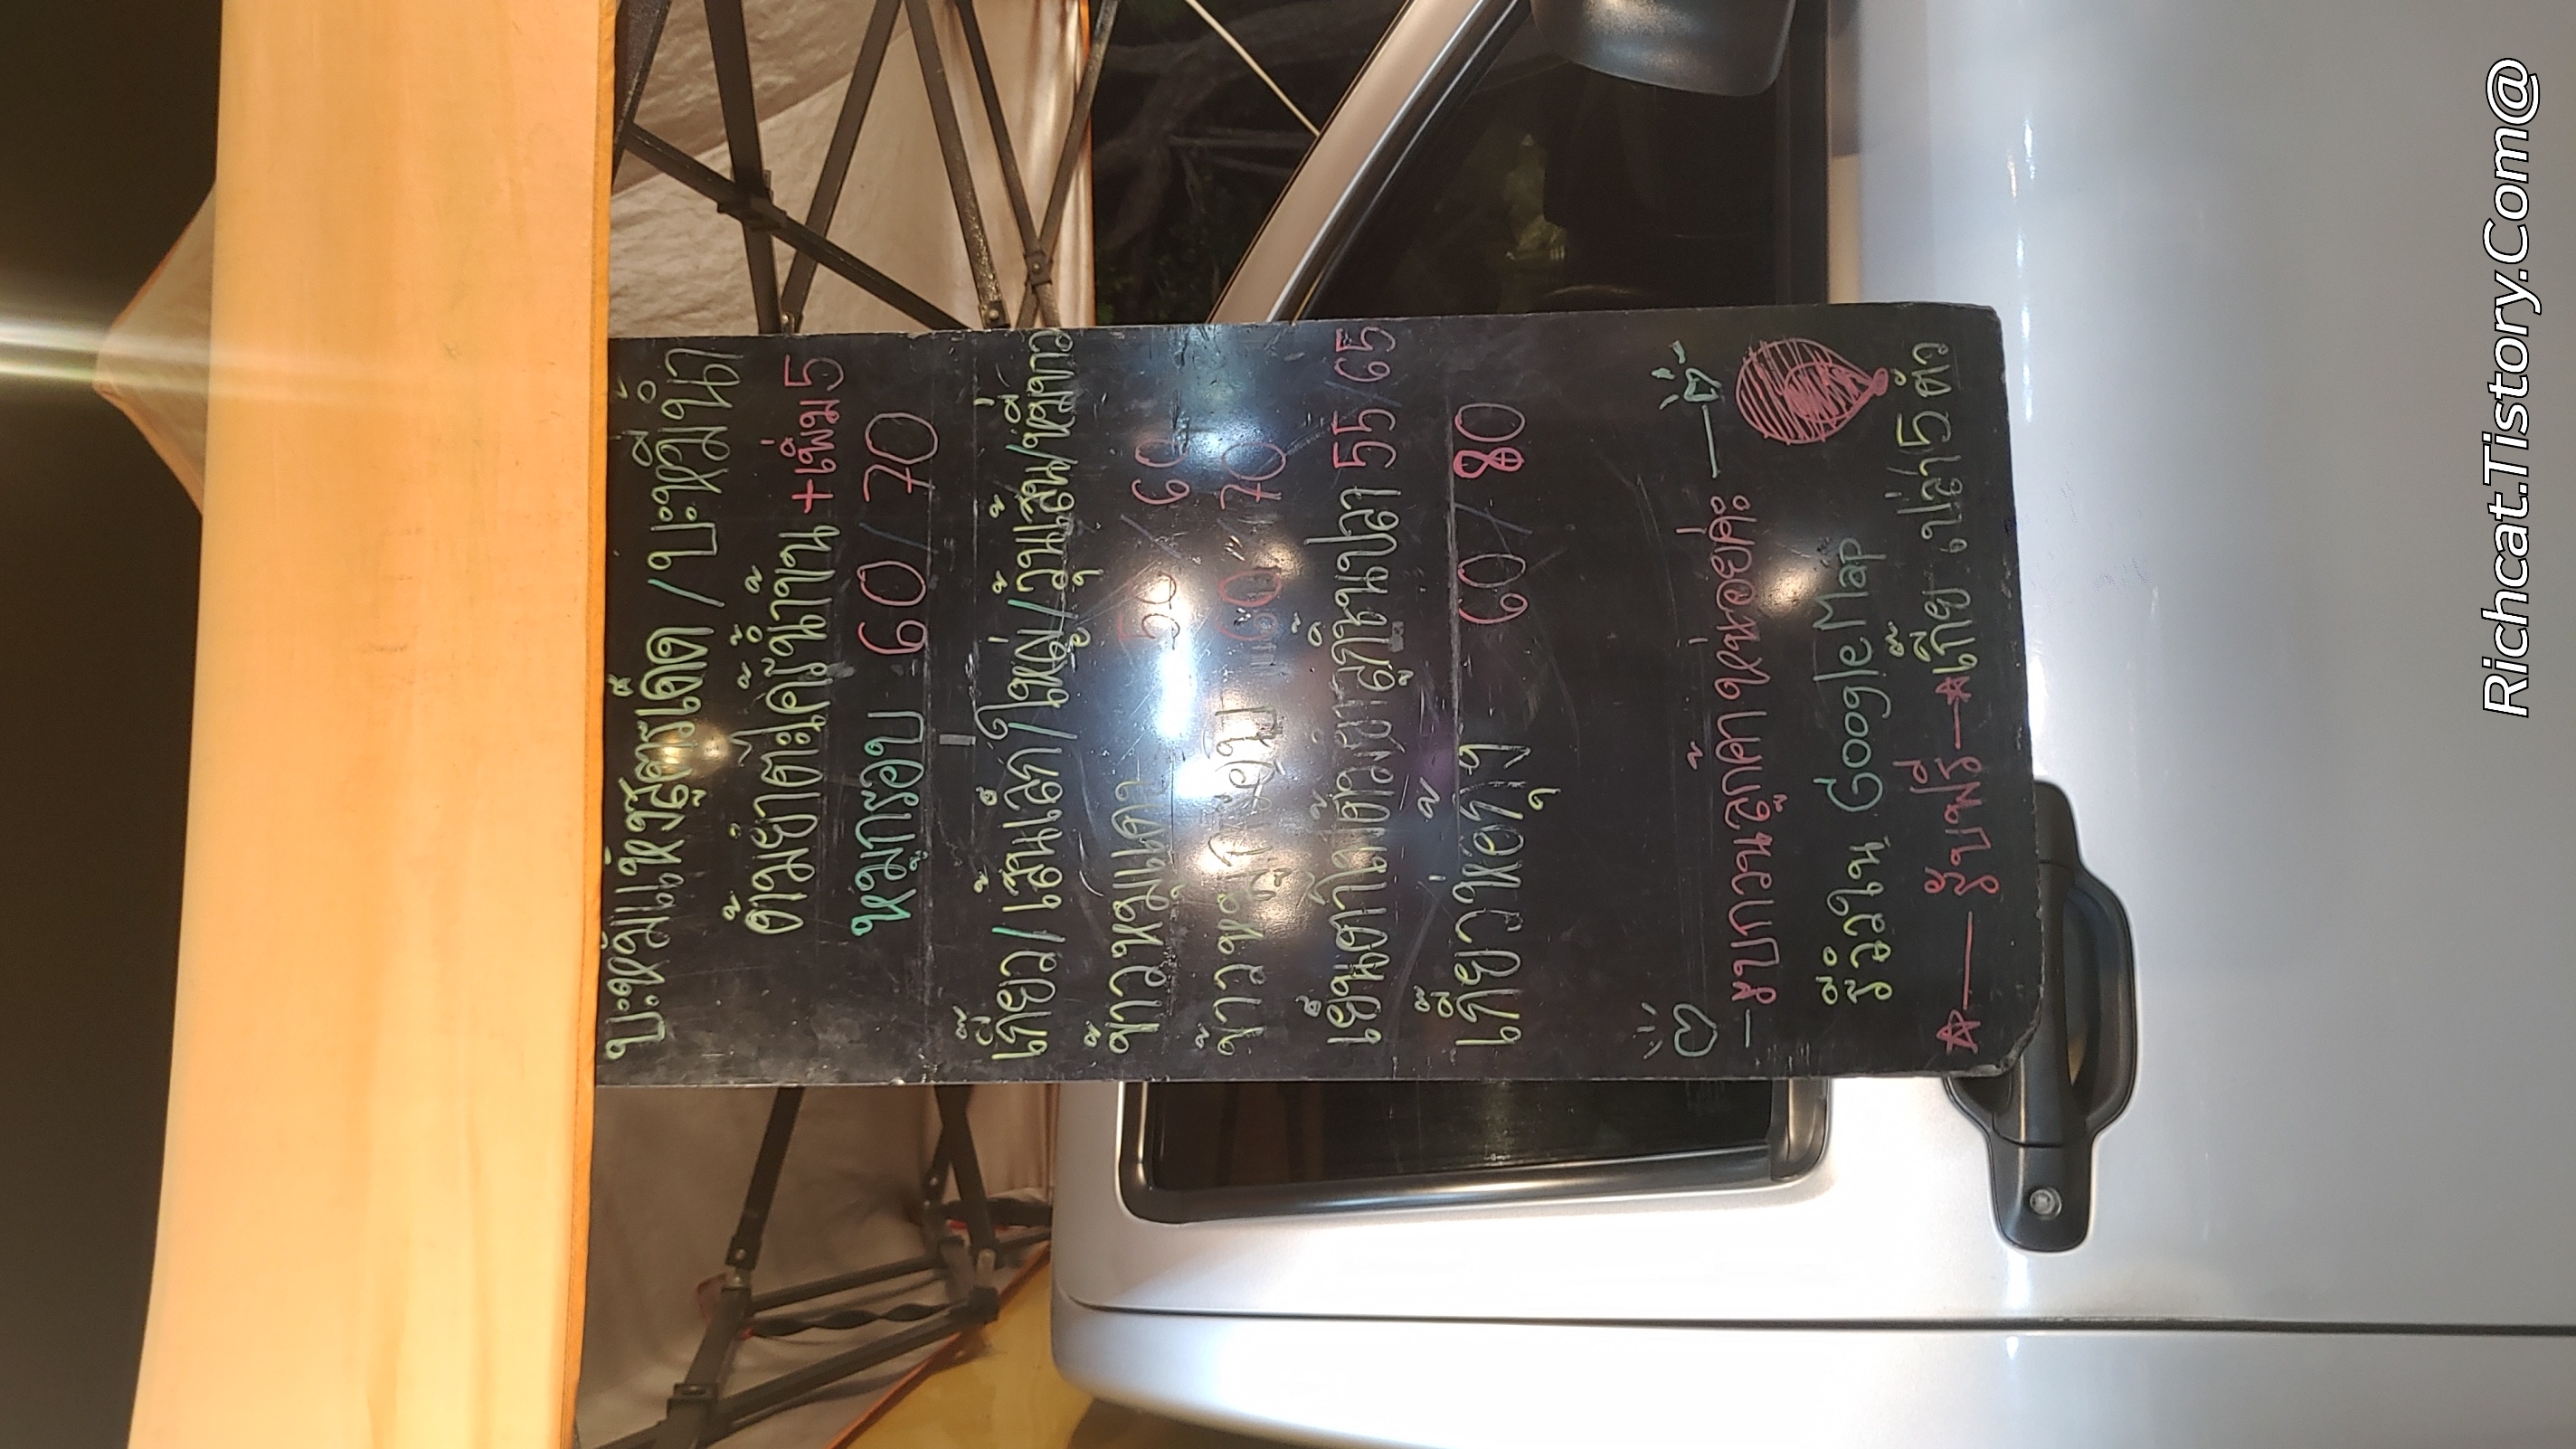 บะหมี่แห้งสูตรเด็ด / บะหมี่น้ำ
ต้มยำตะไคร้น้ำข้น +เพิ่ม 5
หมูกรอบ 60 / 70
เกี๊ยว / เส้นเล็ก / ใหญ่ / วุ้นเส้น / หมี่ขาว
ข้าวหมูแดง 50 / 60
ข้าวหมู 60 / 70
เย็นตาโฟ ลูกชิ้นปลา 55 / 65
เกี๊ยวหอกุ้ง 60 / 80
– มาบกวนลูกน้องหน่อยค่ะ —
รีวิวใน Google Map
☆ — รับฟรี — ☆ เกี๊ยวเปล่า 5 ตัว
Richcat.Tistory.Com@